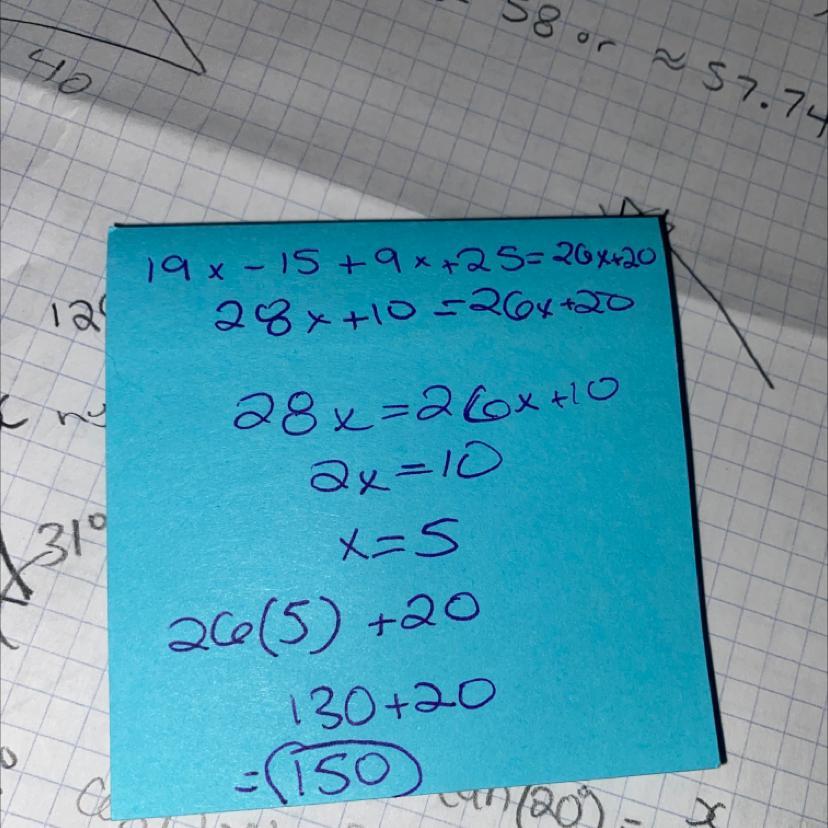 58 or ≈ 57.74
40
19x - 15 + 9x + 25 = 26x+20
28x + 10 = 26x + 20
12
28x = 26x + 10
2x = 10
31°
x = 5
26(5) + 20
130 + 20
= 150
tan(20°) = x